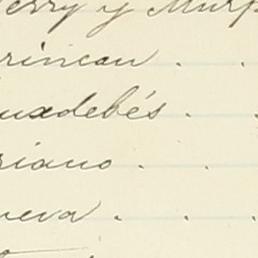 erry y Murp
rincau . .
uadebés . .
riano . . .
ueva . . .